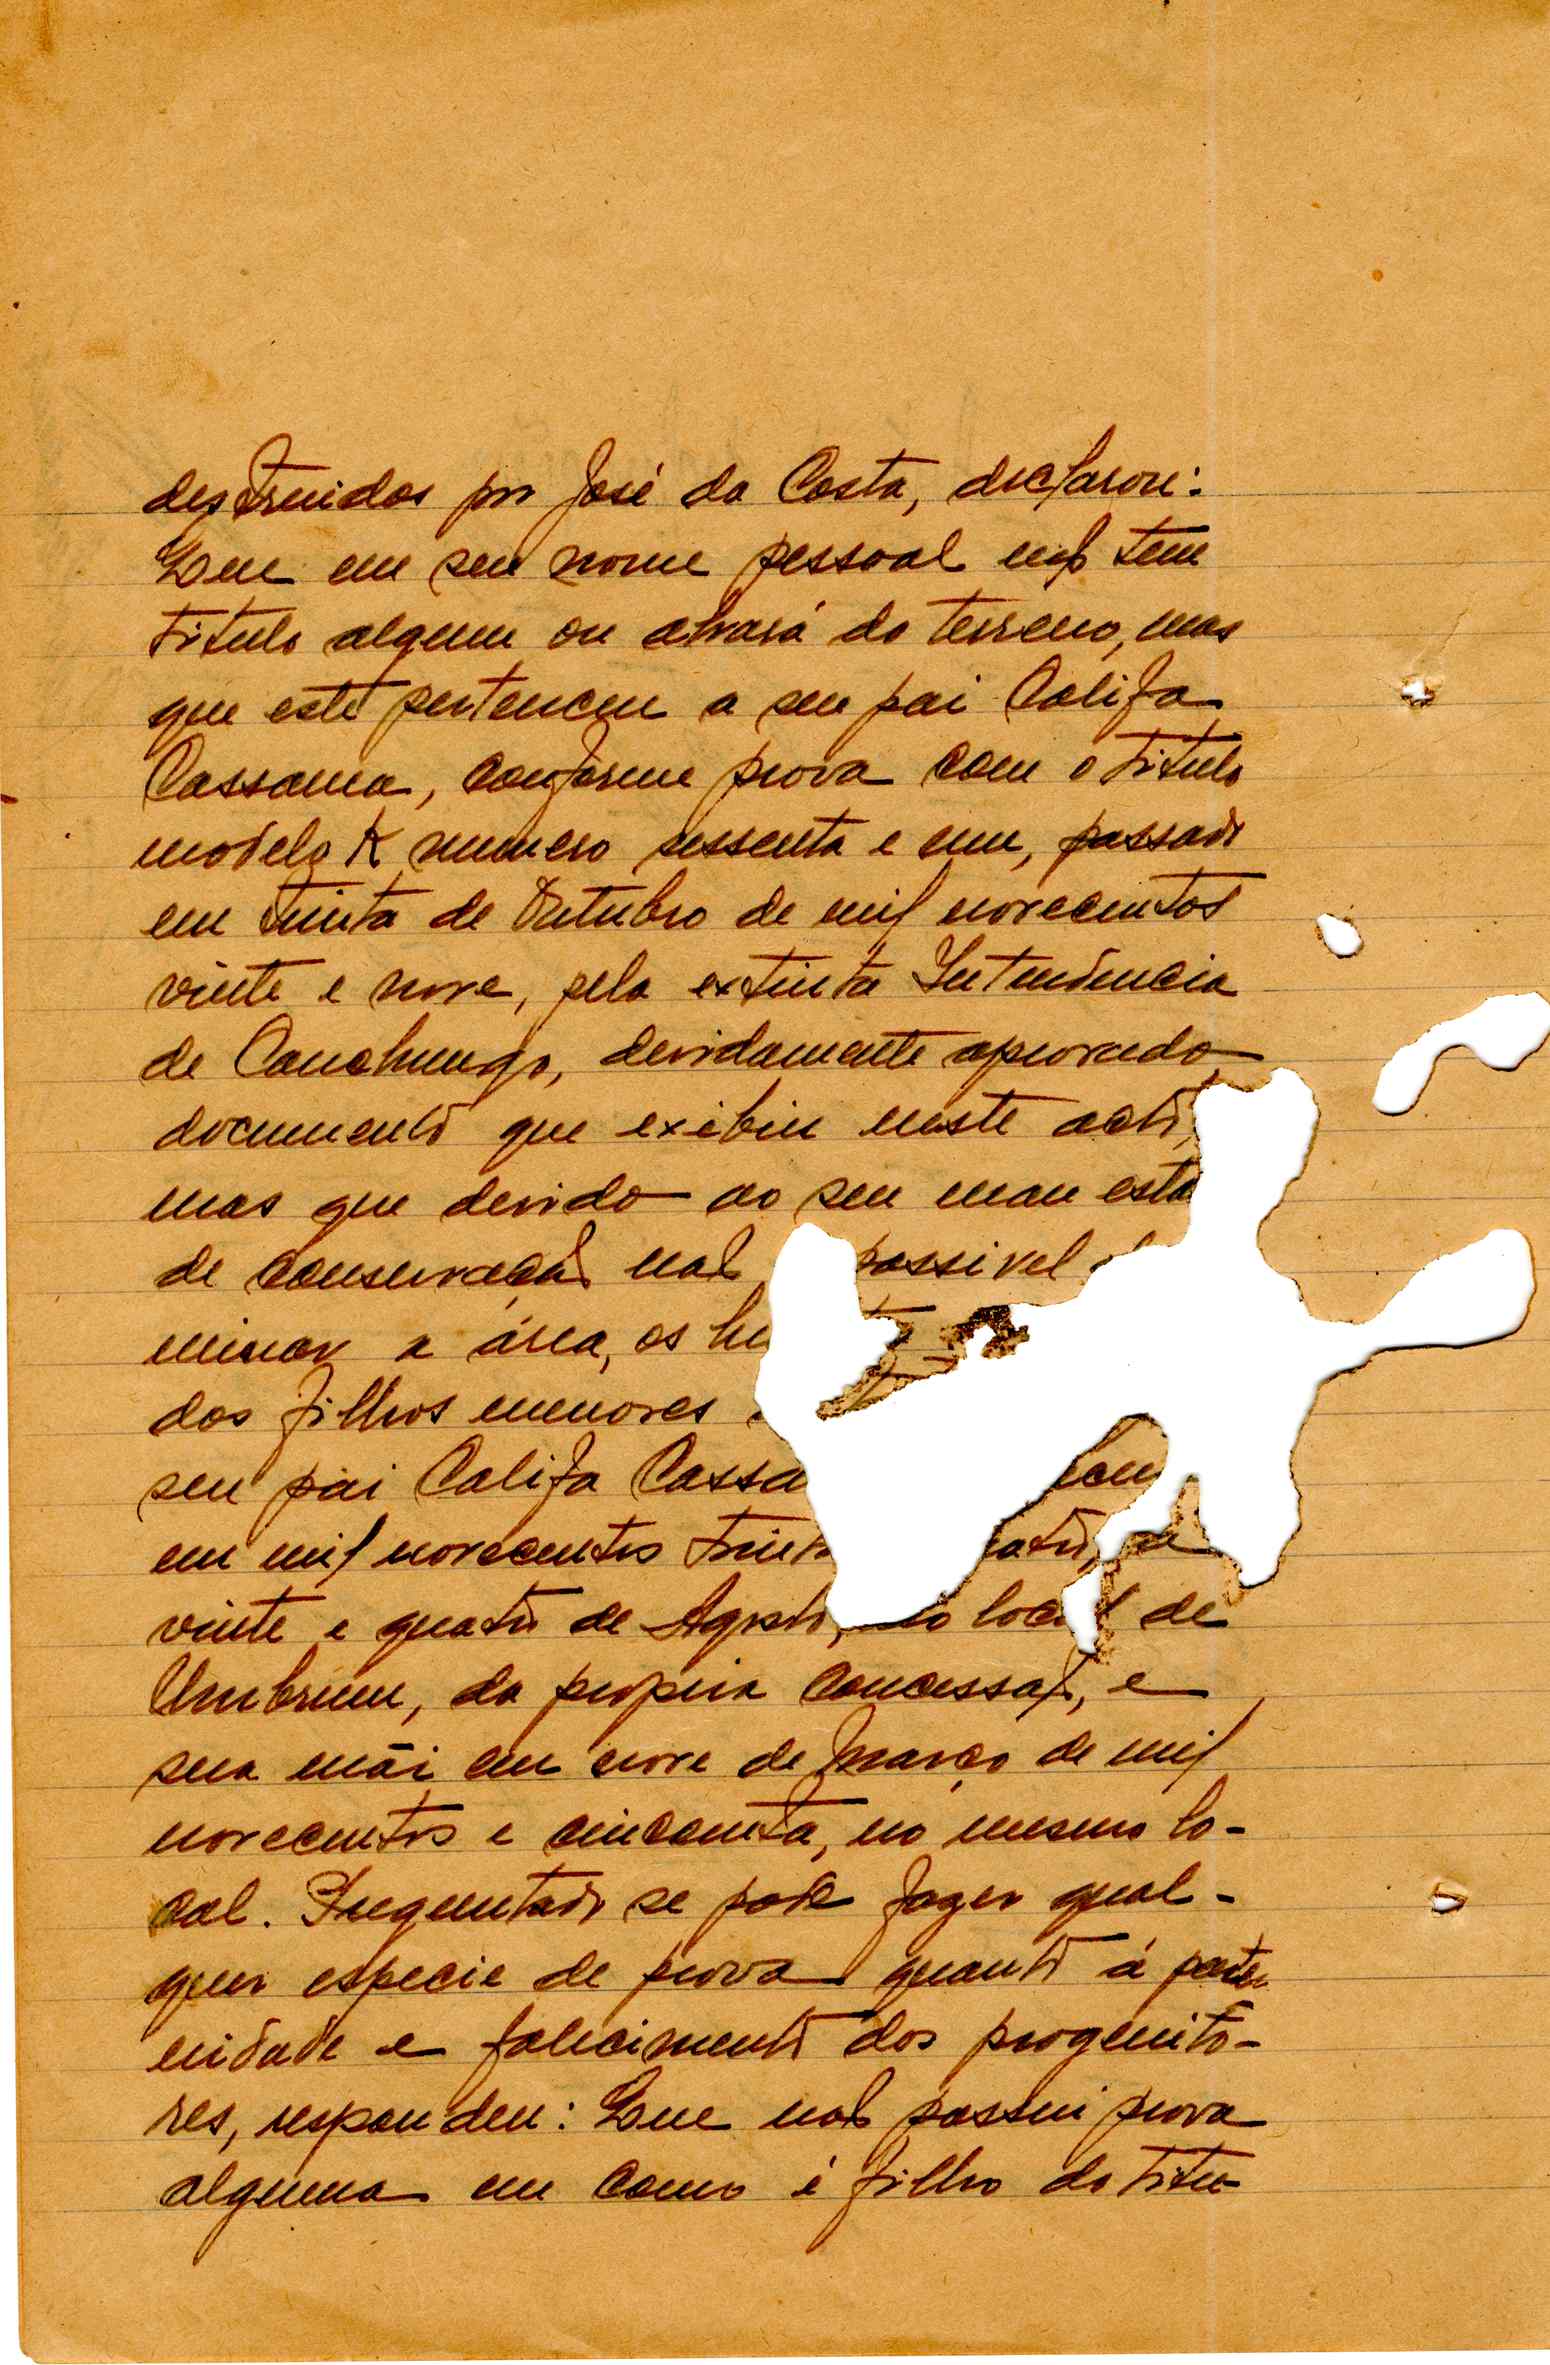 destruidos por José da Costa, declarou:
Que em seu nome pessoal não tem
titulo algum ou alvará do terreno, mas
que este pertenceu a seu pai Califa
Cassama, conforme prova com o titulo
modelo K numero sessenta e um, passado
em trinta de Outubro de mil novecentos
vinte e nove, pela extinta Intendencia
de Canchungo, devidamente aprovado
documento que exibiu neste acto,
mas que devido ao seu mau esta
de conservação não possivel
minar a área, os
dos filhos menores
seu pai Califa Cassa
em mil novecentos trint
vinte e quatro de Agosto, no local de
Umbrum, da propria concessão, e
sua mãi em nove de Março de mil
novecentos e cincoenta, no mesmo lo-
cal. Preguntado se pode fazer qual-
quer especie de prova quanto á pater
nidade e falecimento dos progenito-
res, respondeu: Que não possui prova
alguma em como é filho do titu-